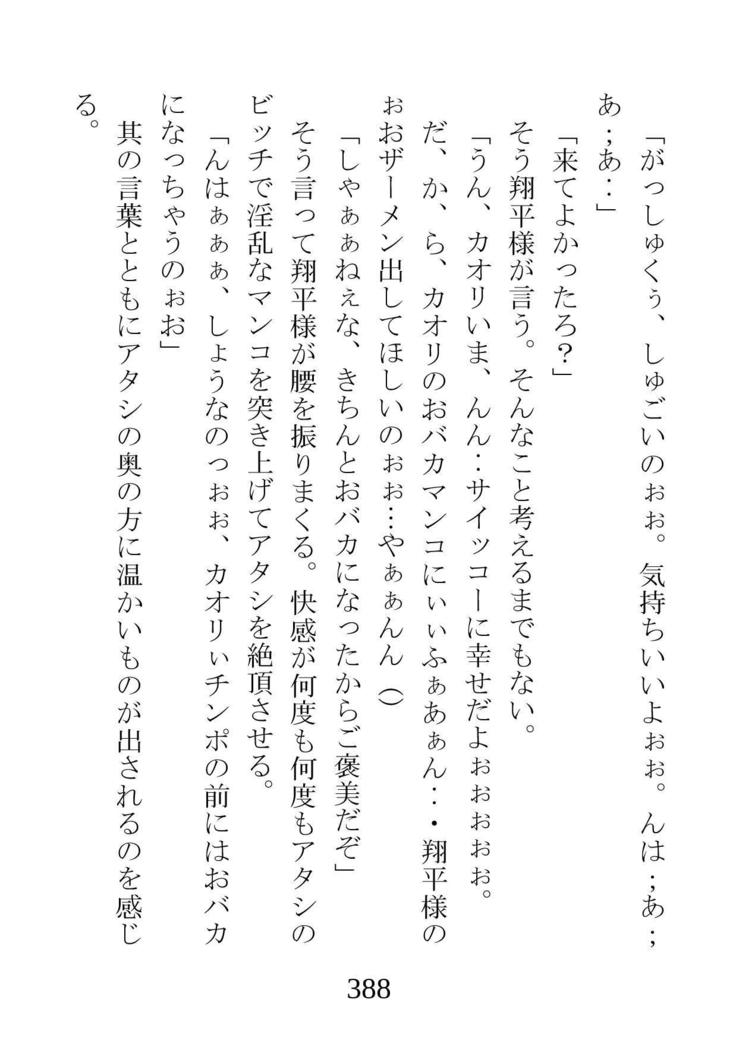 「がっしゅくぅ、しゅごいのぉぉ。気持ちいいよぉぉ。んは；あ；
あ；あ‥」
「来てよかったろ？」
そう翔平様が言う。そんなこと考えるまでもない。
「うん、カオリいま、んん‥サイッコーに幸せだよぉぉぉぉぉ。
だ、か、ら、カオリのおバカマンコにぃぃふぁあぁん‥・翔平様の
ぉおザーメン出してほしいのぉぉ…やぁぁんん（）
「しゃぁぁねぇな、きちんとおバカになったからご褒美だぞ」
そう言って翔平様が腰を振りまくる。快感が何度も何度もアタシの
ビッチで淫乱なマンコを突き上げてアタシを絶頂させる。
「んはぁぁぁ、しょうなのっぉぉ、カオリぃチンポの前にはおバカ
になっちゃうのぉお」
其の言葉とともにアタシの奥の方に温かいものが出されるのを感じ
る。
388